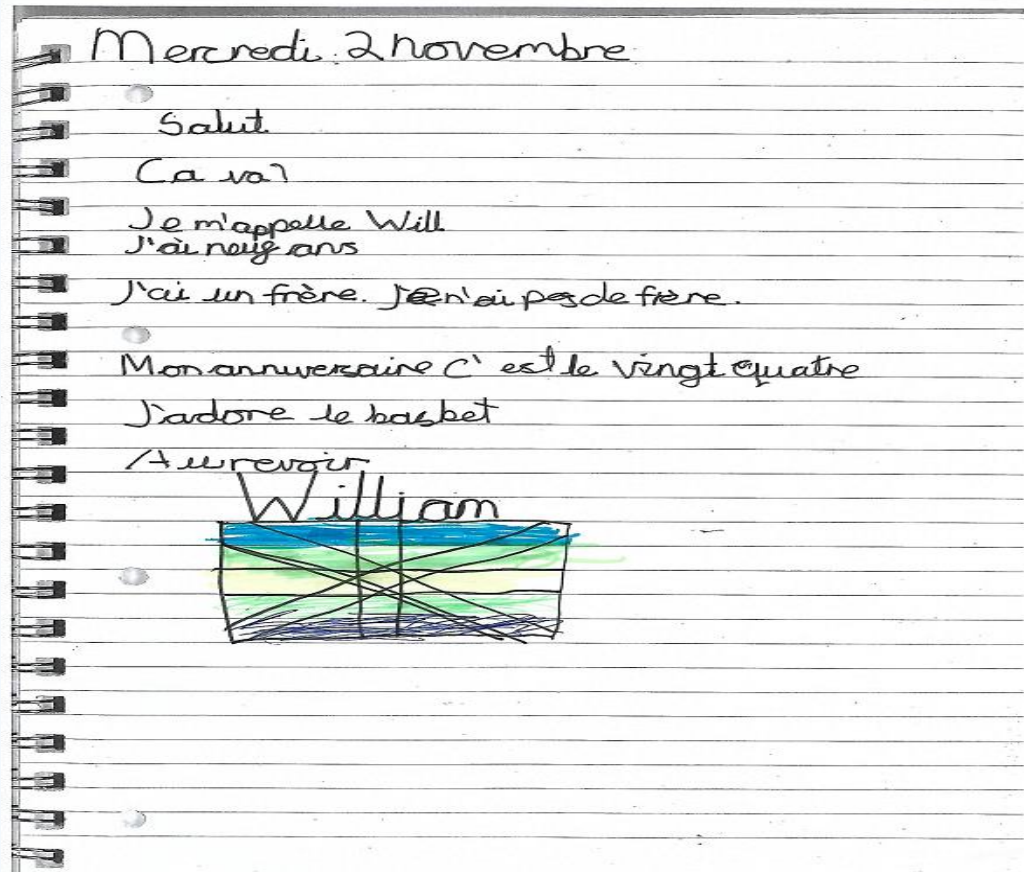 Mercredi 2 novembre
Salut
Ca va?
Je m'appelle Will
J'ai neuf ans
J'ai un frère. Je n'ai pas de frère.
Mon anniversaire C'est le vingt quatre
J'adore le basket
Au revoir
William